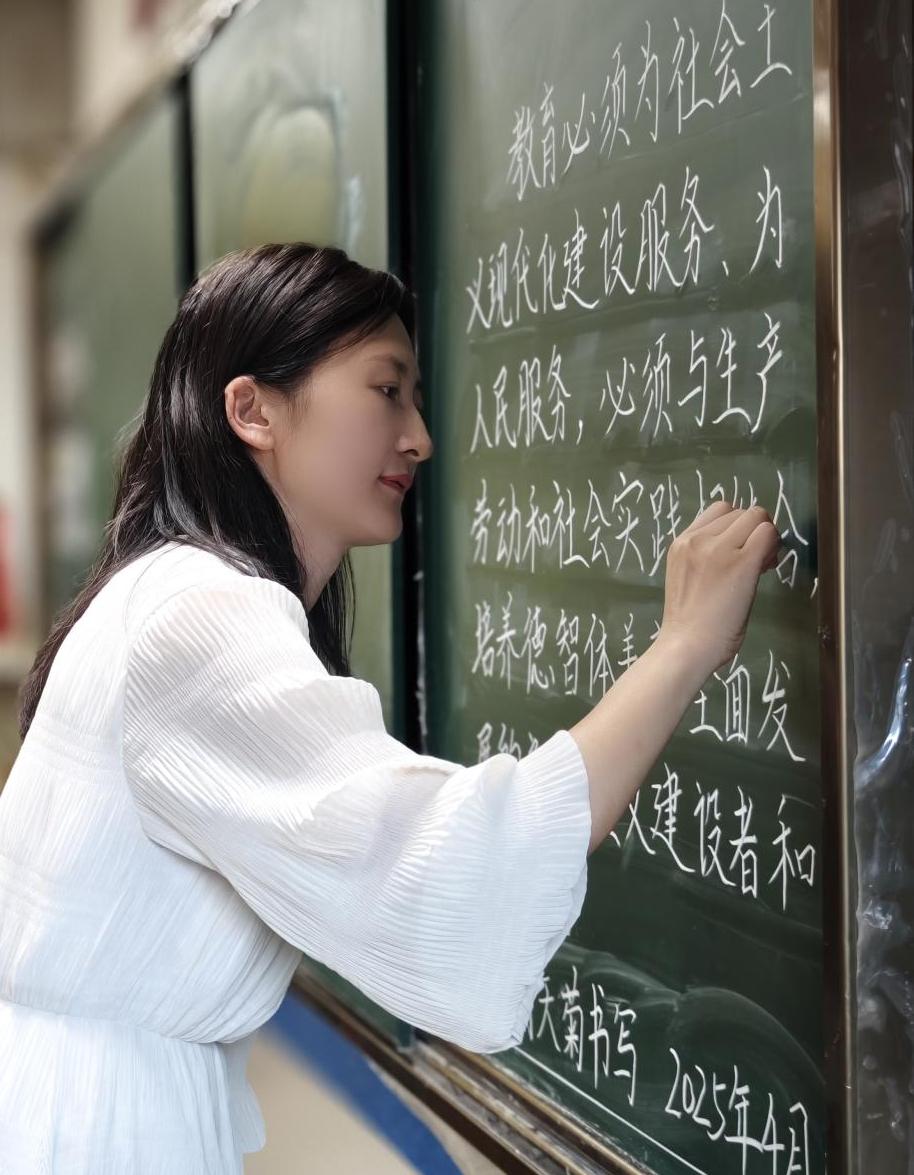 教育必须为社会主
义现代化建设服务、为
人民服务,必须与生产
劳动和社会实践 合,
培养德智体美 面发
建设者和
天菊书写
2025年4月